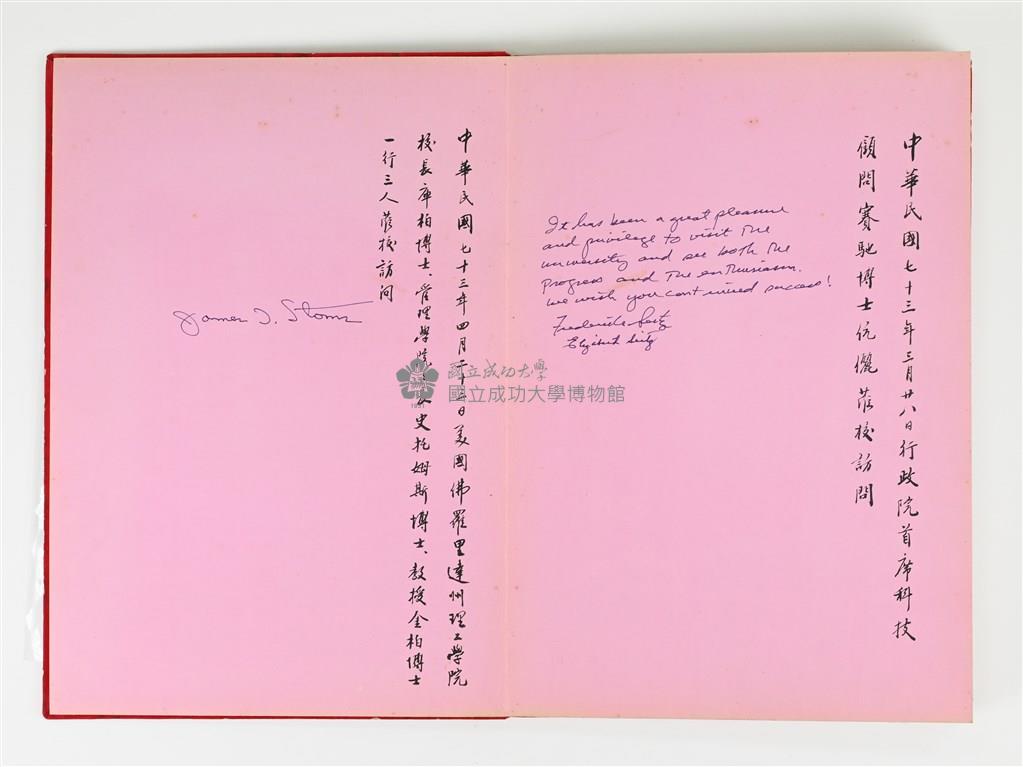 中華民國七十三年三月廿八日行政院首席科技
顧問賽馳博士伉儷蒞校訪問
It has been a great pleasure
and privilege to visit the
university and see both the
progress and the enthusiasm.
We wish you continued success!
Frederick Seitz
Elizabeth Seitz
中華民國七十三年四月二十日美國佛羅里達州理工學院
校長庫柏博士、管理學院史托姆斯博士、教授金柏博士
一行三人蒞校訪问
James T. Stoms
國立成功大學
國立成功大學博物館
1931